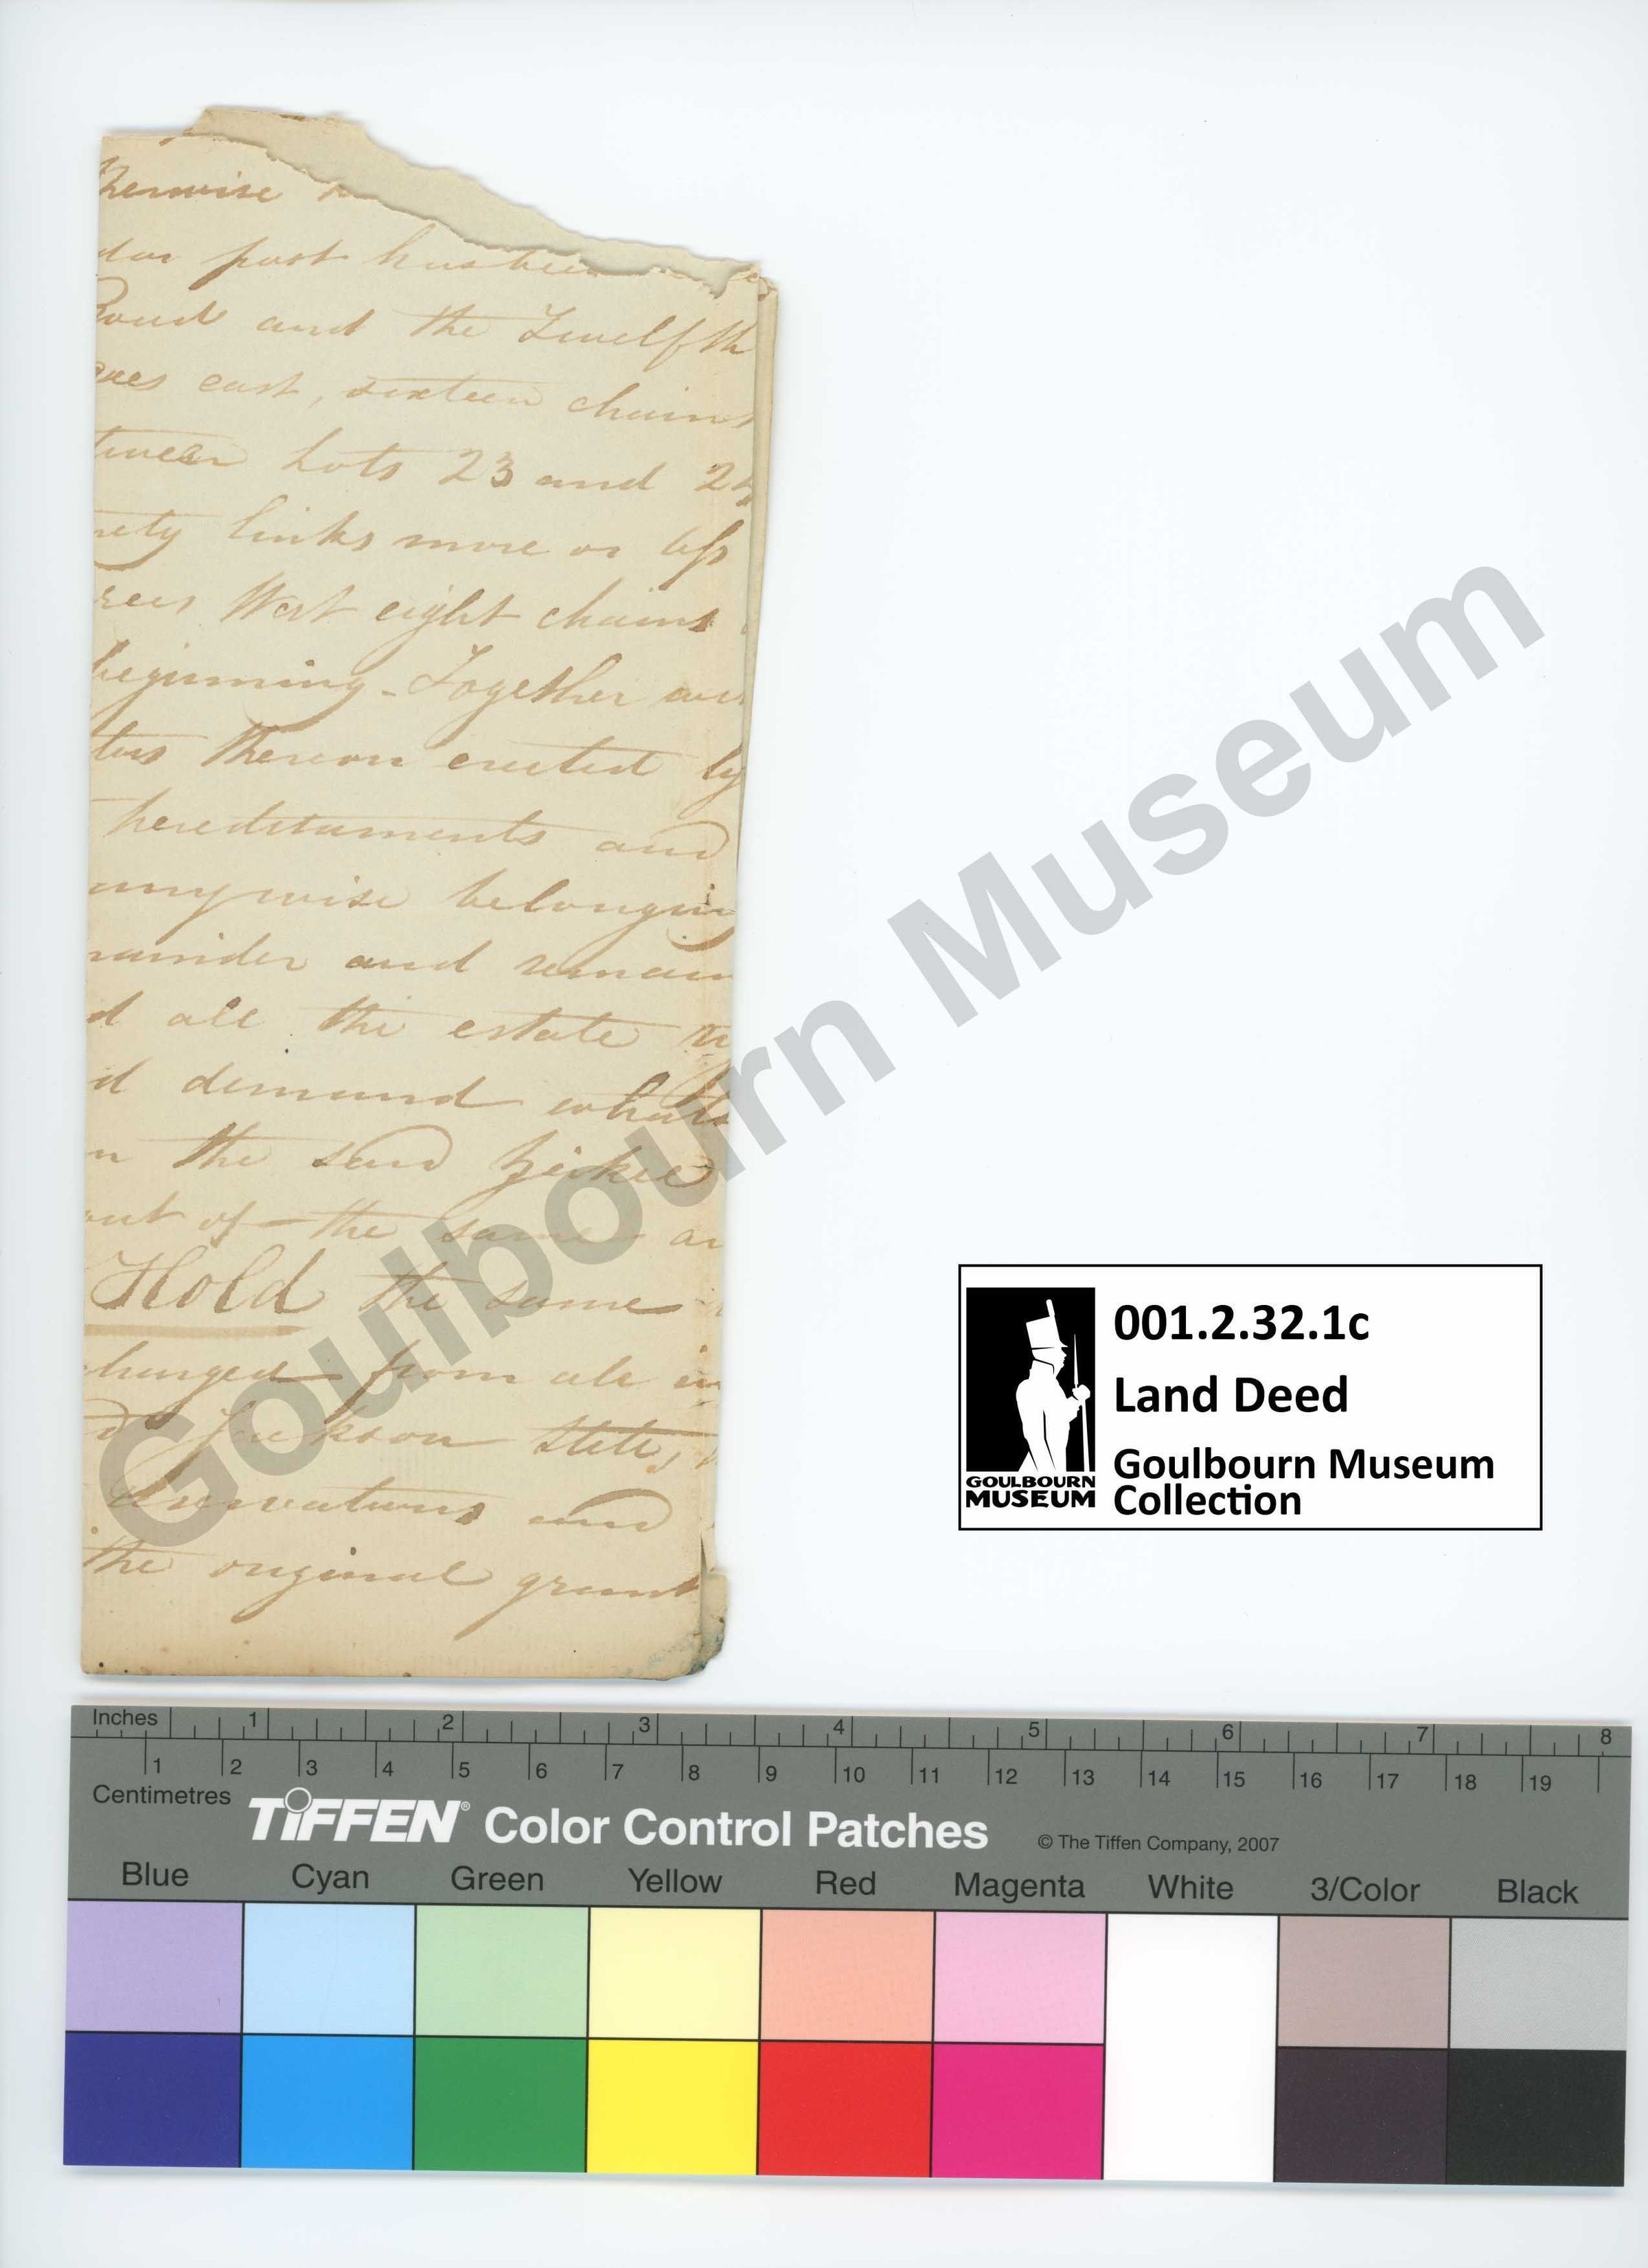 therwise
dar post has been
Road and the Twelfth
rees east, sixteen chains
tween Lots 23 and 24
nety links more or less
rees West eight chains
beginning - Together
ters thereon erected
hereditaments and
anywise belonging
mainder and remain
d all the estate
d demand whats
n the said
out of the same an
Hold the same
charged from all in
d Jackson Stitts,
eservations and
the original grant
Goulbourn Museum
001.2.32.1c
Land Deed
Goulbourn Museum
Collection
GOULBOURN
MUSEUM
Inches 1 2 3 4 5 6 7 8
1 2 3 4 5 6 7 8 9 10 11 12 13 14 15 16 17 18 19
Centimetres
TIFFEN® Color Control Patches © The Tiffen Company, 2007
Blue Cyan Green Yellow Red Magenta White 3/Color Black